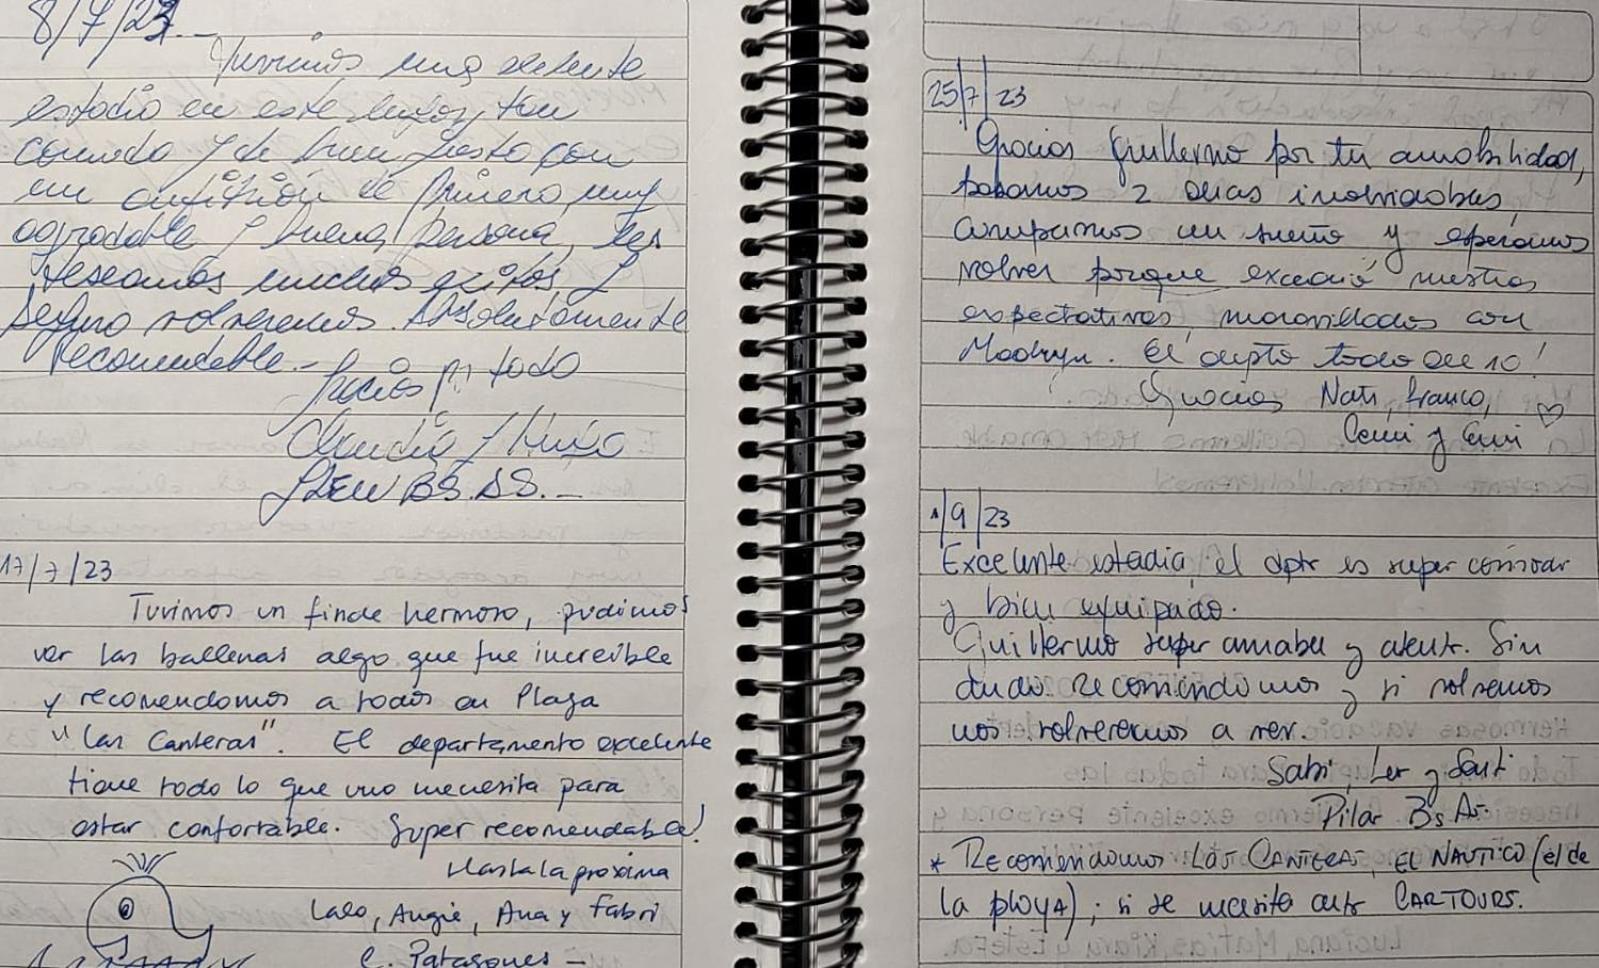 8/7/23.-
Tuvimos muy excelente
estadia en este lugar, tan
comodo y de buen gusto con
un anfitrión de primera, muy
agradable y buena persona, les
deseamos muchos exitos. y
seguro volveremos. Absolutamente
Recomendable.-
Gracias p. todo
Claudia y Hugo
BS.AS.-
17/7/23
Tuvimos un finde hermoso, pudimos
ver las ballenas algo que fue increíble
y recomendamos a todos en Playa
"Las Canteras". El departamento excelente
tiene todo lo que uno necesita para
estar confortable. Super recomendable!
Hasta la proxima
Lalo, Angie, Ana y Fabri
C. Patagones -
25/7/23
Gracias Guillermo por tu amabilidad,
pasamos 2 dias inolvidables,
cumplimos un sueño y esperamos
volver porque excedió nuestras
expectativas, maravillados con
Madryn. El depto todo de 10!
Gracias Nati, Franco,
Cami y Emi
1/9/23
Excelente estadia, el dpto es super comodo
y bien equipado.
Guillermo super amable y atento. Sin
duda recomendamos y si volvemos
nos volveremos a ver.
Sabri, Ler y Santi
Pilar Bs As.
* Recomendamos LAS CANTERAS, EL NAUTICO (el de
la playa), si se necesita auto CARTOURS.